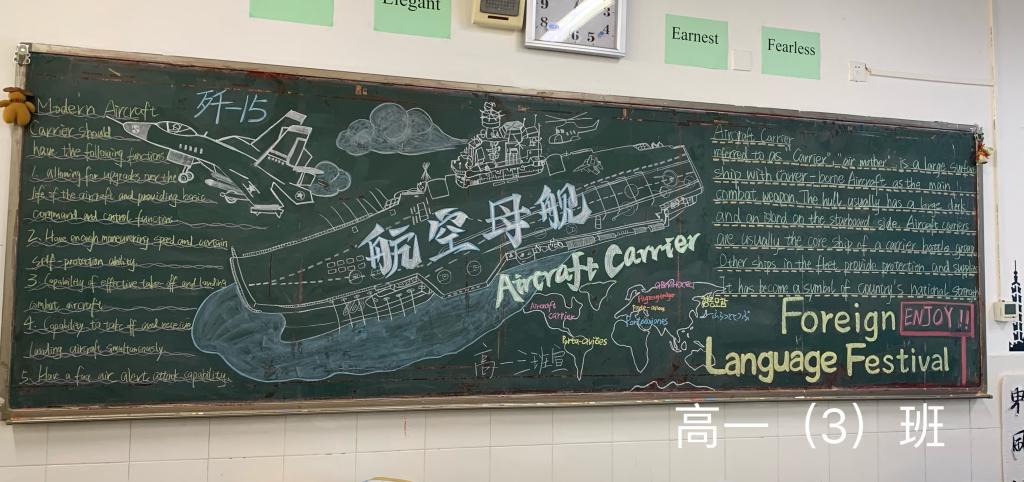 Elegant
Earnest
Fearless
歼-15
Modern Aircraft
Carrier should
have the following functions
1. allowing for upgrades over the
life of the aircraft and providing basic
command and control functions
2. Have enough maneuvering speed and certain
self-protection ability.
3. Capability of effective take off and landing
combat aircraft
4. Capability to take off and receive
landing aircraft simultaneously
5. Have a far air alert attack capability.
航空母舰
Aircraft Carrier
Aircraft
carrier
Porta-aviões
Porte-avions
高一三班宣
Aircraft Carrier
referred to as "Carrier", "air mother", is a large surface
ship with carrier-borne Aircraft as the main
combat weapon. The hull usually has a large deck
and an island on the starboard side. Aircraft carriers
are usually the core ship of a carrier battle group
Other ships in the fleet provide protection and supply
it has become a symbol of country's national strength
Foreign
ENJOY!!
Language Festival
高一（3）班